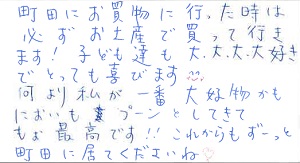 町田にお買物に行った時は
必ずお土産で買って行き
ます！子ども達も大、大、大、大好き
でとっても喜びます
何より私が一番大好物かも
においもプーンとしてきて
もぉ最高です!!これからもずーっと
町田に居てくださいね♡